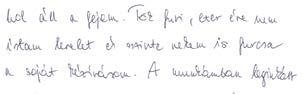 hol áll a fejem. Tök furi, ezer éve nem
írtam levelet és szinte nekem is furcsa
a saját kézírásom. A munkámban leginkább